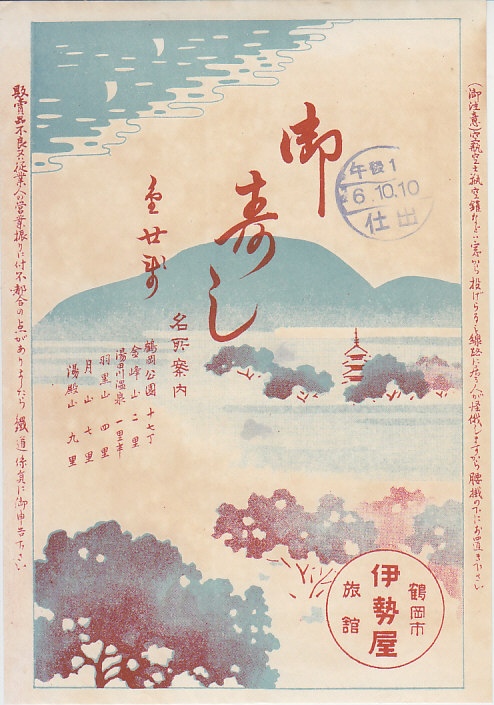 (御注意)空瓶空土瓶空鑵などは窓から投げられると線路に居る人が怪俄しますから腰掛の下にお置き下さい
御寿し
金廿銭
午後1
6.10.10
仕出
名所案内
鶴岡公園 十七丁
金峰山 二里
湯田川温泉 一里半
羽黒山 四里
月山 七里
湯殿山 九里
鶴岡市
伊勢屋
旅館
販賣品不良又は従業人の営業振りに付不都合の点がありましたら鐵道係員に御申告下さい